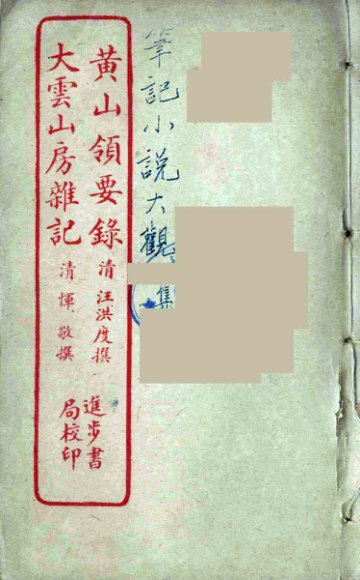 筆記小說大觀
集
黃山領要錄 清 汪洪度撰
大雲山房雜記 清 惲敬撰
進步書
局校印